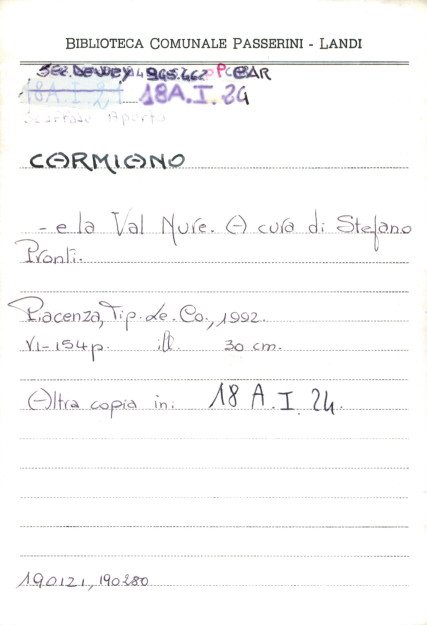 BIBLIOTECA COMUNALE PASSERINI - LANDI
SEZ. DEWEY 945.462 PCEAR
18A.I.21 18A.I.24
Scaffale Aperto
CARMIANO
- e la Val Nure. A cura di Stefano
Pronti.
Piacenza, Tip. Le. Co., 1992.
VI-154 p. ill. 30 cm.
Altra copia in: 18 A. I. 24.
190121, 190280